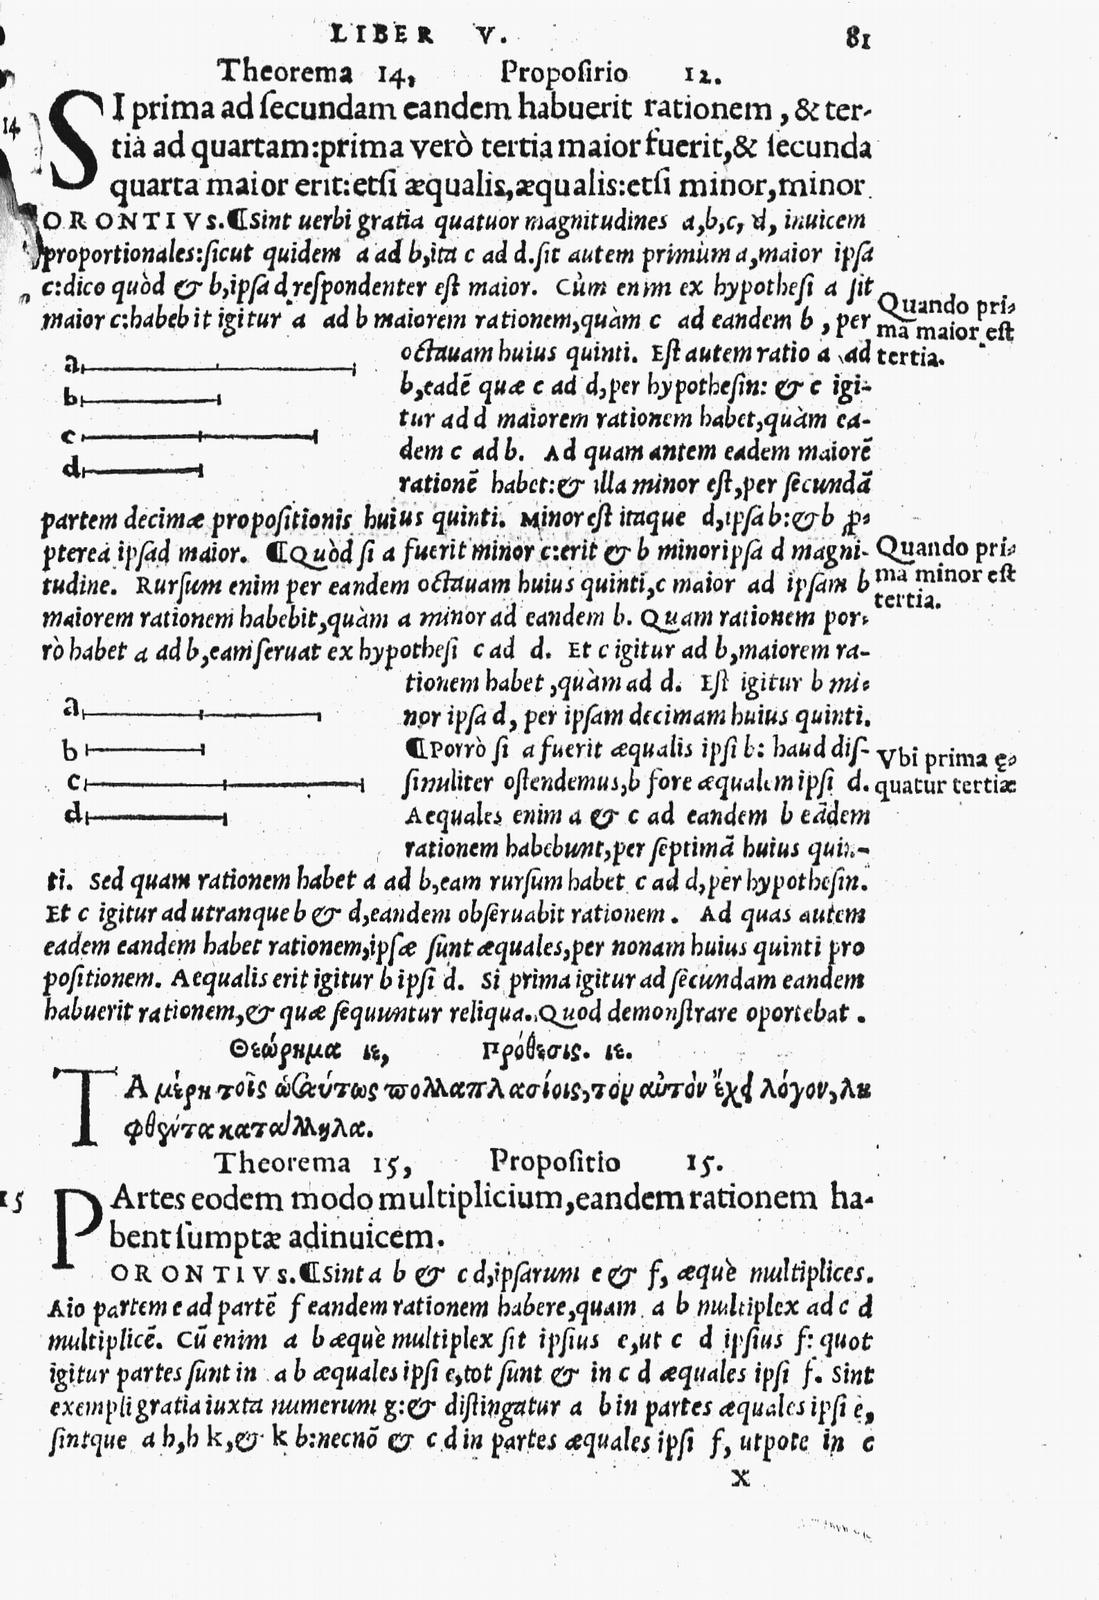 LIBER V. 81
Theorema 14, Propositio 12.
14
SI prima ad secundam eandem habuerit rationem, & ter-
tia ad quartam:prima verò tertia maior fuerit,& secunda
quarta maior erit:etsi æqualis,æqualis:etsi minor,minor.
ORONTIVS.¶Sint uerbi gratia quatuor magnitudines a,b,c, d, inuicem
proportionales:sicut quidem a ad b,ita c ad d.sit autem primùm a,maior ipsa
c:dico quòd & b,ipsa d respondenter est maior. Cùm enim ex hypothesi a sit
maior c:habebit igitur a ad b maiorem rationem,quàm c ad eandem b, per
Quando pri-
ma maior est
tertia.
octauam huius quinti. Est autem ratio a ad
b,eadē quæ c ad d,per hypothesin: & c igi-
tur ad d maiorem rationem habet,quàm ea-
dem c ad b. Ad quam antem eadem maiorē
rationē habet:& illa minor est,per secundā
a
b
c
d
partem decimæ propositionis huius quinti. Minor est itaque d,ipsa b:& b ꝓ-
pterea ipsa d maior. ¶Quòd si a fuerit minor c:erit & b minor ipsa d magni-
tudine. Rursum enim per eandem octauam huius quinti,c maior ad ipsam b
maiorem rationem habebit,quàm a minor ad eandem b. Quam rationem por-
rò habet a ad b,eam seruat ex hypothesi c ad d. Et c igitur ad b,maiorem ra-
Quando pri-
ma minor est
tertia.
tionem habet,quàm ad d. Est igitur b mi-
nor ipsa d, per ipsam decimam huius quinti.
¶Porrò si a fuerit æqualis ipsi b: haud dis-
similiter ostendemus,b fore æqualem ipsi d.
Aequales enim a & c ad eandem b eādem
rationem habebunt,per septimā huius quin-
a
b
c
d
Vbi prima ę-
quatur tertiæ
ti. Sed quam rationem habet a ad b,eam rursum habet c ad d,per hypothesin.
Et c igitur ad utranque b & d,eandem obseruabit rationem. Ad quas autem
eadem eandem habet rationem,ipsæ sunt æquales,per nonam huius quinti pro
positionem. Aequalis erit igitur b ipsi d. Si prima igitur ad secundam eandem
habuerit rationem,& quæ sequuntur reliqua. Quod demonstrare oportebat.
Θεώρημα ιε, Πρόθεσις. ιε.
ΤΑ μέρη τοῖς ὡσαύτως πολλαπλασίοις,τὸν αὐτὸν ἔχει λόγον,λη
φθέντα κατάλληλα.
Theorema 15, Propositio 15.
15
PArtes eodem modo multiplicium,eandem rationem ha-
bent sumptæ adinuicem.
ORONTIVS.¶Sint a b & c d,ipsarum e & f, æquè multiplices.
Aio partem e ad partē f eandem rationem habere,quam a b multiplex ad c d
multiplicē. Cū enim a b æquè multiplex sit ipsius e,ut c d ipsius f: quot
igitur partes sunt in a b æquales ipsi e,tot sunt & in c d æquales ipsi f. Sint
exempli gratia iuxta numerum g:& distingatur a b in partes æquales ipsi e,
sintque a h,h k,& k b:necnō & c d in partes æquales ipsi f, utpote in c
x